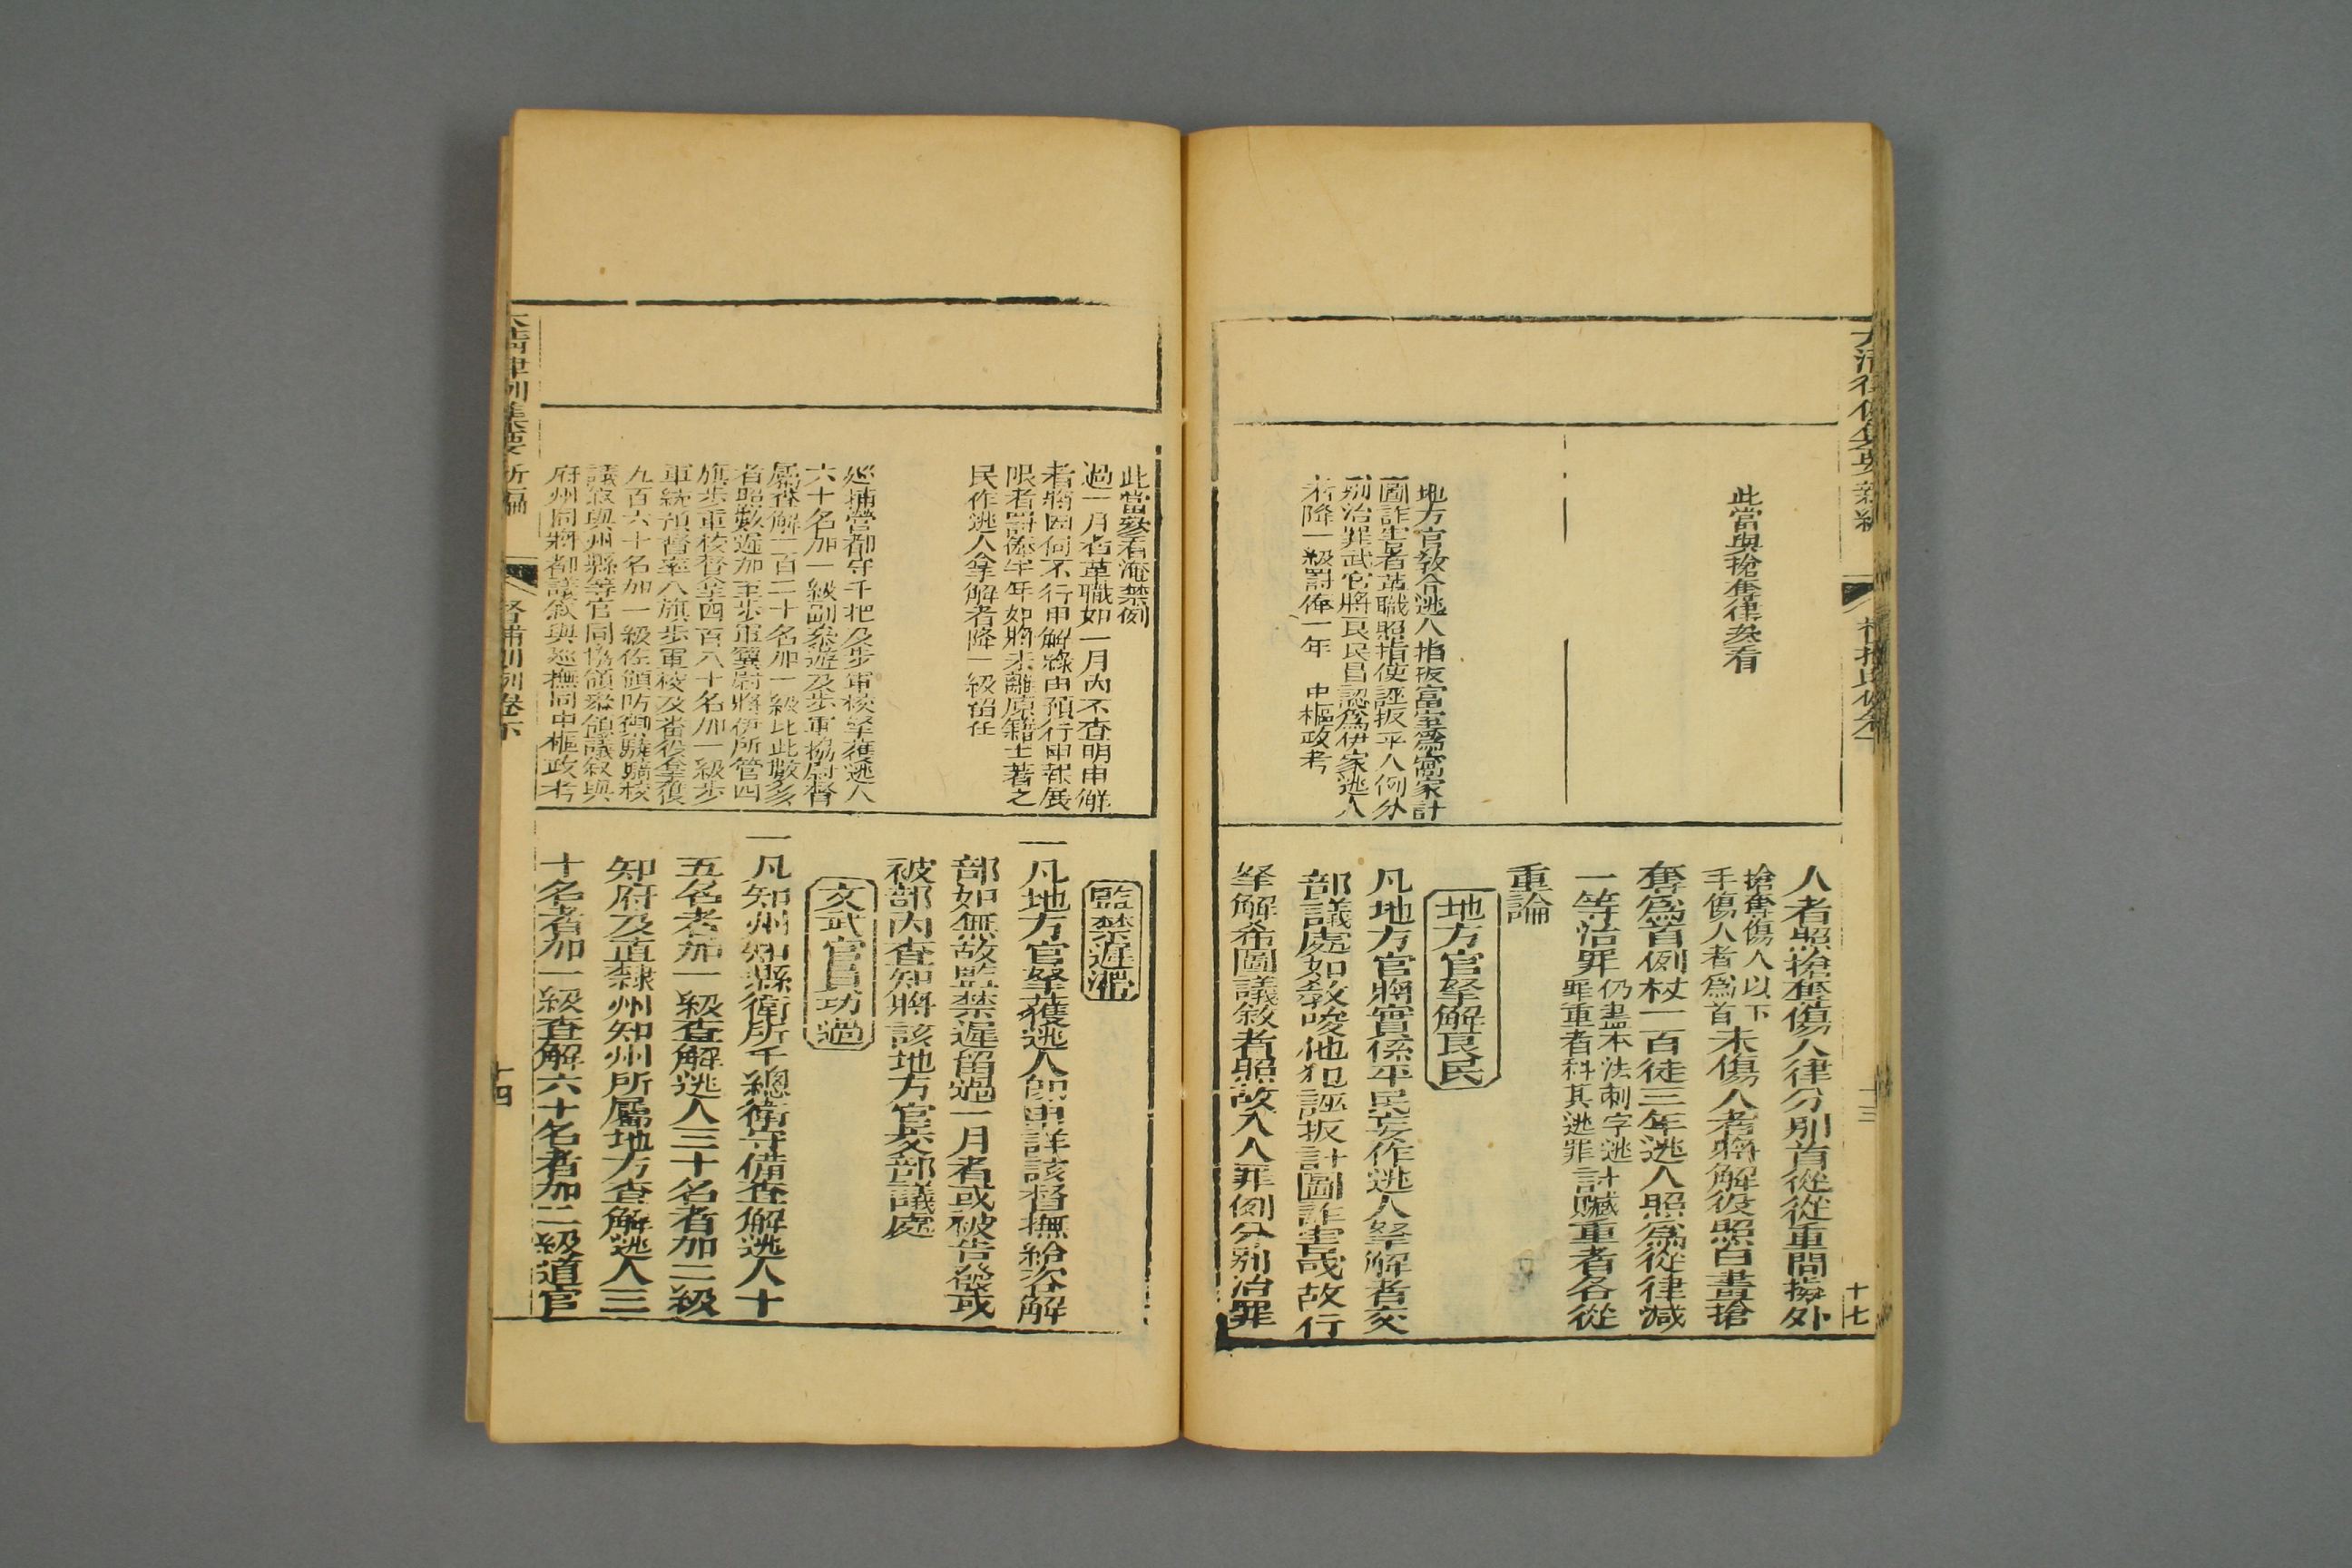 大清律例集要新編
十三
十七
此當與搶奪律參看
地方官教令逃人指扳富室爲窩家計
圖詐害者革職照指使誣扳平人例分
別治罪武官將民民冒認爲伊家逃人
者降一級罰俸一年 中樞政考
人者照搶奪傷人律分別首從從重問擬外
搶奪傷人以下
手傷人者爲首
未傷人者將解役照白晝搶
奪爲首例杖一百徒三年逃人照爲從律減
一等治罪
仍盡本法刺字逃
罪重者科其逃罪
計贓重者各從
重論
地方官拏解良民
凡地方官將實係平民妄作逃人拏解者交
部議處如教唆他犯誣扳計圖詐害或故行
拏解希圖議敘者照故入人罪例分別治罪
此當參看淹禁例
過一月者革職如一月內不查明申解
者將因何不行申解緣由預行申報展
限者罰俸半年如將未離原籍土著之
民作逃人拿解者降一級留任
巡捕營都守千把及步軍校拏獲逃人
六十名加一級副參遊及步軍協尉督
屬查解一百二十名加一級比此數多
者照數遞加至步軍翼尉將伊所管四
旗步軍校督拿四百八十名加一級步
軍統領督率八旗步軍校及番役拿獲
九百六十名加一級佐領防禦驍騎校
議敘與州縣等官同協領參領議敘與
府州同將都議敘與巡撫同中樞政考
監禁遲滯
一凡地方官拏獲逃人卽申詳該督撫給咨解
部如無故監禁遲留過一月者或被告發或
被部內查知將該地方官交部議處
文武官員功過
一凡知州知縣衛所千總衛守備查解逃人十
五名者加一級查解逃人三十名者加二級
知府及直隸州知州所屬地方查解逃人三
十名者加一級查解六十名者加二級道官
大清律例集要新編
督捕則例卷下
十四